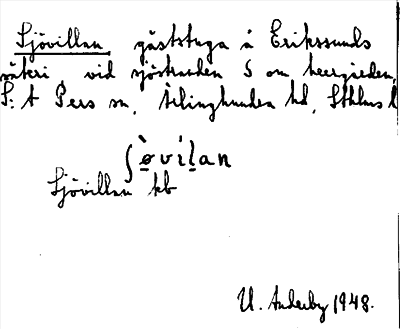 Sjövillan, gäststuga å Erikssunds
säteri, vid sjöstranden S om herrgården,
S:t Pers sn, Ärlinghundra hd, Sthlms l
ʃø̀víl̠an
Sjövillan kb
U. Anderby 1948.